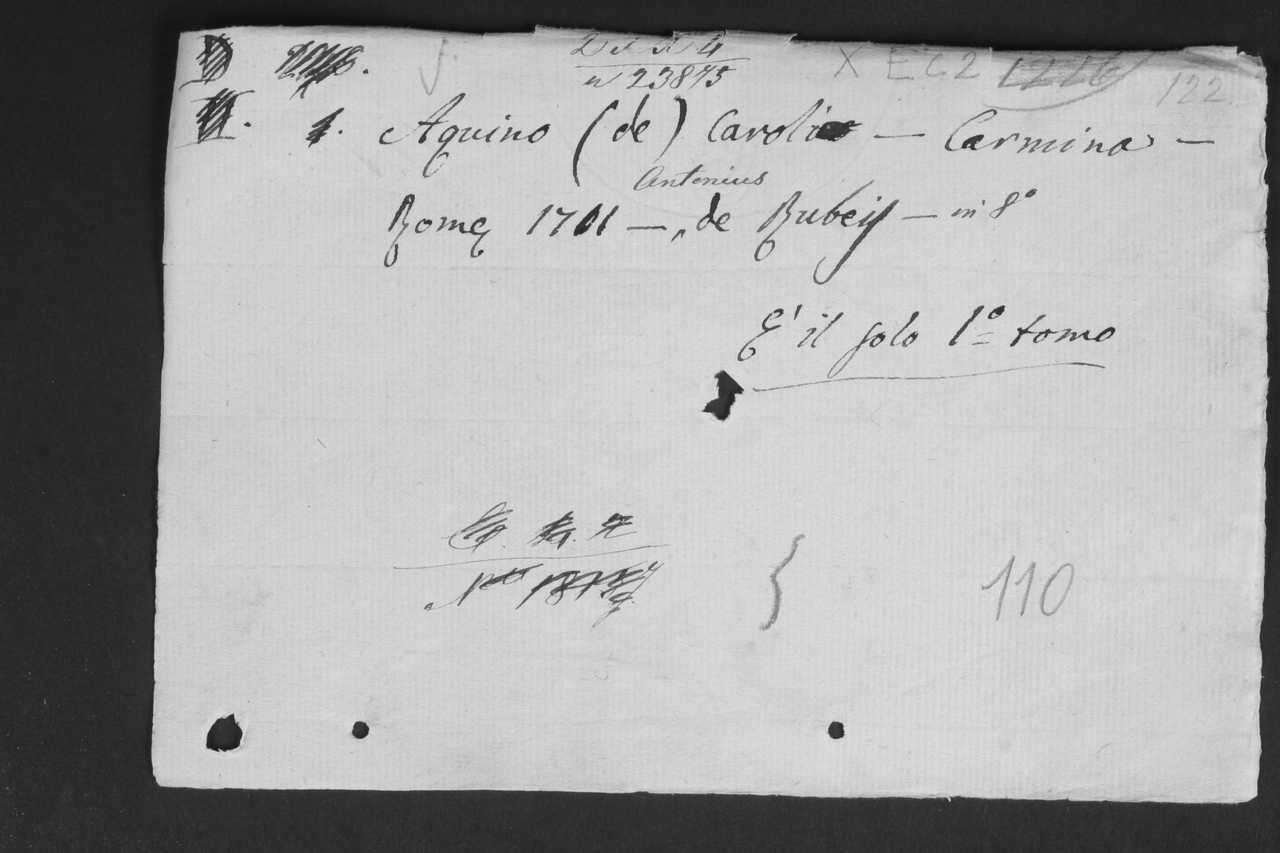 n 23875
X E C 2 1226 122
1. Aquino (de) Caroli — Carmina —
Antonius
Romę 1701 — de Rubeis — in 8º
E' il solo 1º tomo
110